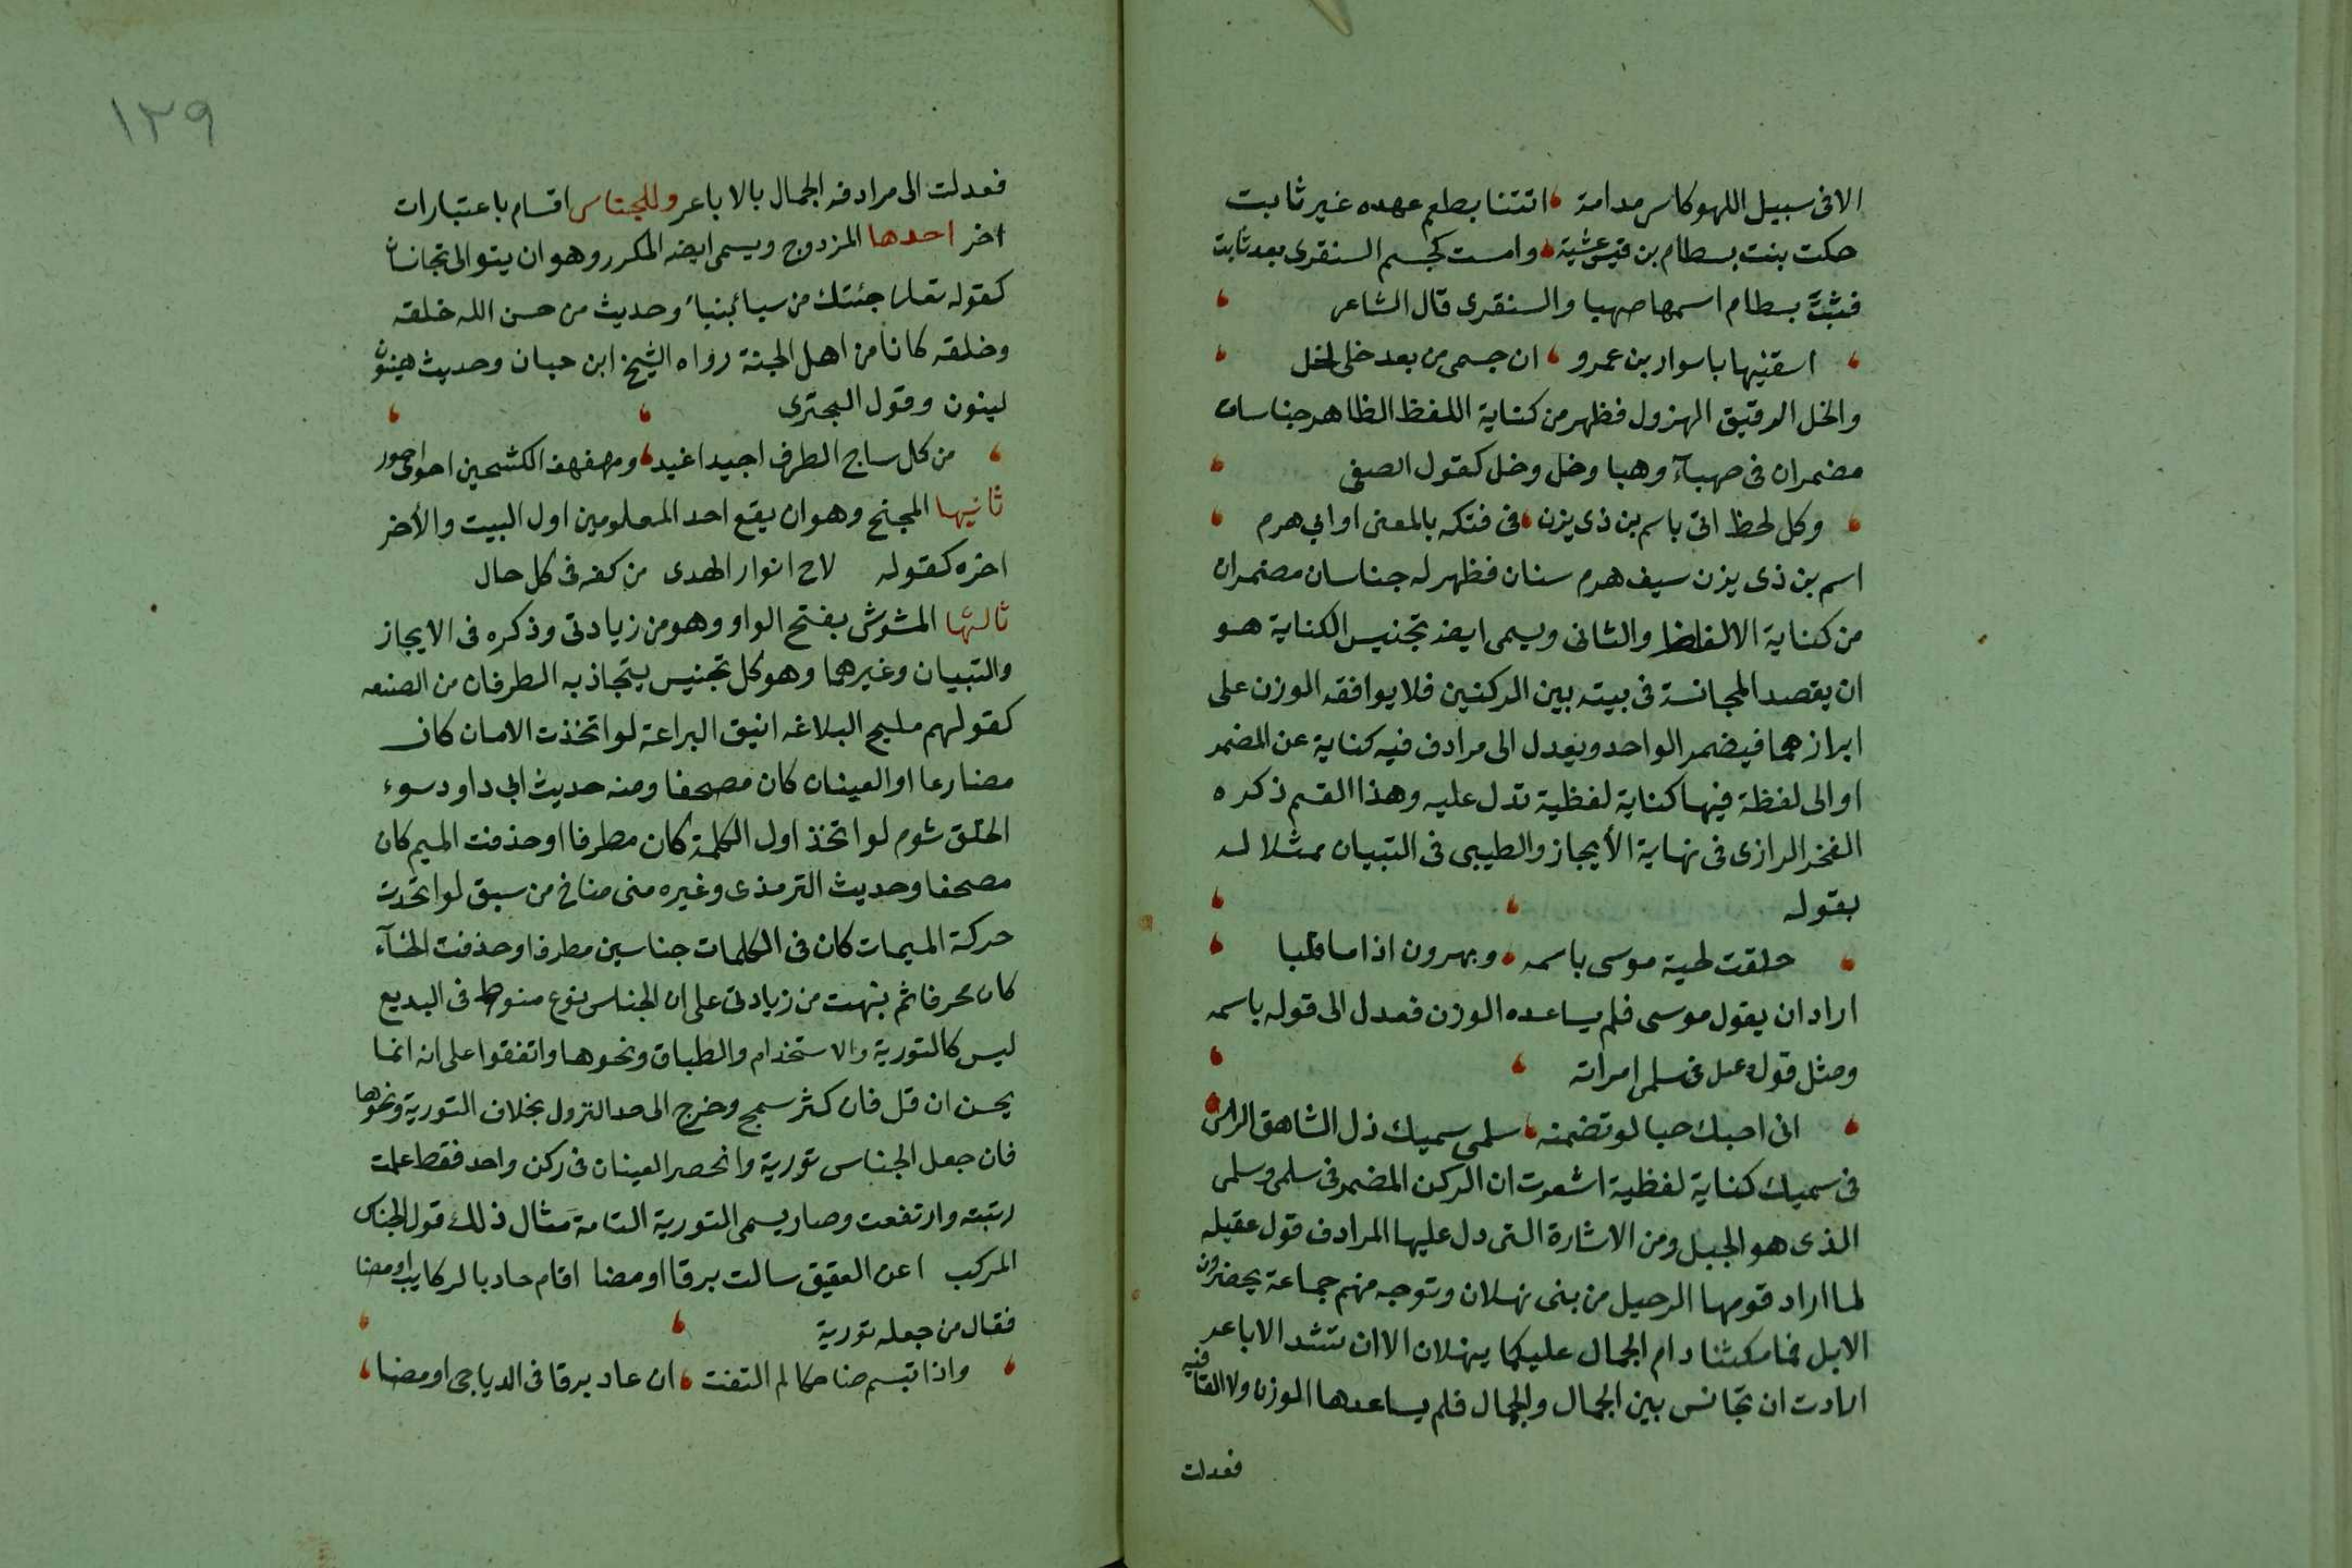 الا فى سبيل اللهو كاس مدامة اتتنا بطعم عهده غير ثابت
حكت بنت بسطام بن قيس عشية وامست كجسم السنقرى بعد ثابت
فبنت بسطام اسمها صهبا والسنقرى قال الشاعر
اسقنيها يا سوار بن عمرو ان جسمى من بعد خلى لخل
والخل الرقيق المهزول فظهر من كناية اللفظ الظاهر جناسان
مضمران فى صهبآء وهبا وخل وخل كقول الصفى
وكل لحظ اتى باسم بن ذى يزن فى فتكه بالمعنى او ابى هرم
اسم بن ذى يزن سيف هرم سنان فظهر له جناسان مضمران
من كناية الالفاظ والثانى ويسمى ايضه تجنيس الكناية هو
ان يقصد المجانسة فى بيته بين الركنين فلا يوافقه الوزن على
ابرازهما فيضمر الواحد ويعدل الى مرادف فيه كناية عن المضمر
او الى لفظة فيها كناية لفظية تدل عليه وهذا القسم ذكره
الفخر الرازى فى نهاية الأيجاز والطيبى فى التبيان ممثلا له
بقوله
حلقت لحية موسى باسمه وبهرون اذا ما قلبا
اراد ان يقول موسى فلم يساعده الوزن فعدل الى قوله باسمه
ومثل قول دعبل فى سلمى امراته
انى احبك حبا لو تضمنه سلمى سميك ذل الشاهق الراسى
فى سميك كناية لفظية اشعرت ان الركن المضمر فى سلمى وسلمى
الذى هو الجبل ومن الاشارة التى دل عليها المرادف قول عقيله
لما اراد قومها الرحيل من بنى نهلان وتوجه منهم جماعة يحضرون
الابل فما مكثنا دام الجمال عليكما بنهلان الا ان تشد الاباعر
ارادت ان تجانس بين الجمال والجمال فلم يساعدها الوزن ولا القافيه
فعدلت
١٢٩
فعدلت الى مرادفه الجمال بالاباعر وللجناس اقسام باعتبارات
اخر احدها المزدوج ويسمى ايضه المكرر وهو ان يتوالى تجانسان
كقوله تعلى جئتك من سبا بنبأ وحديث من حسن الله خلقه
وخلقه كانا من اهل الجنة رواه الشيخ ابن حبان وحديث هينون
لينون وقول البحترى
من كل ساجى الطرف اجيد اغيد ومهفهف الكشحين احوى احور
ثانيها المجنح وهو ان يقع احد المعلومين اول البيت والأخر
اخره كقوله لاح انوار الهدى من كفه فى كل حال
ثالثها المشوش بفتح الواو وهو من زيادتى وذكره فى الايجاز
والتبيان وغيرهما وهو كل تجنيس يتجاذبه الطرفان من الصنعه
كقولهم مليح البلاغه انيق البراعة لو اتخذت الامان كان
مضارعا او العينان كان مصحفا ومنه حديث ابى داود سوء
الخلق شوم لو اتخذ اول الكلمة كان مطرفا او حذفت الميم كان
مصحفا وحديث الترمذى وغيره منى مناخ من سبق لو اتحدت
حركة الميمات كان فى الكلمات جناسين مطرفا او حذفت الخآء
كان محرفا ثم نبهت من زيادتى على ان الجناس نوع متوسط فى البديع
ليس كالتورية والاستخدام والطباق ونحوها واتفقوا على انه انما
يحسن ان قل فان كثر سمج وخرج الى حد النزول بخلاف التورية ونحوها
فان جعل الجناس تورية وانحصر العينان فى ركن واحد فقط علت
رتبته وارتفعت وصار يسمى التورية التامة مثال ذلك قول الجناس
المركب اعن العقيق سالت برقا اومضا اقام حاد بالركايب او مضا
فقال من جعله تورية
واذا تبسم ضاحكا لم التفت ان عاد برقا فى الدياجى اومضا